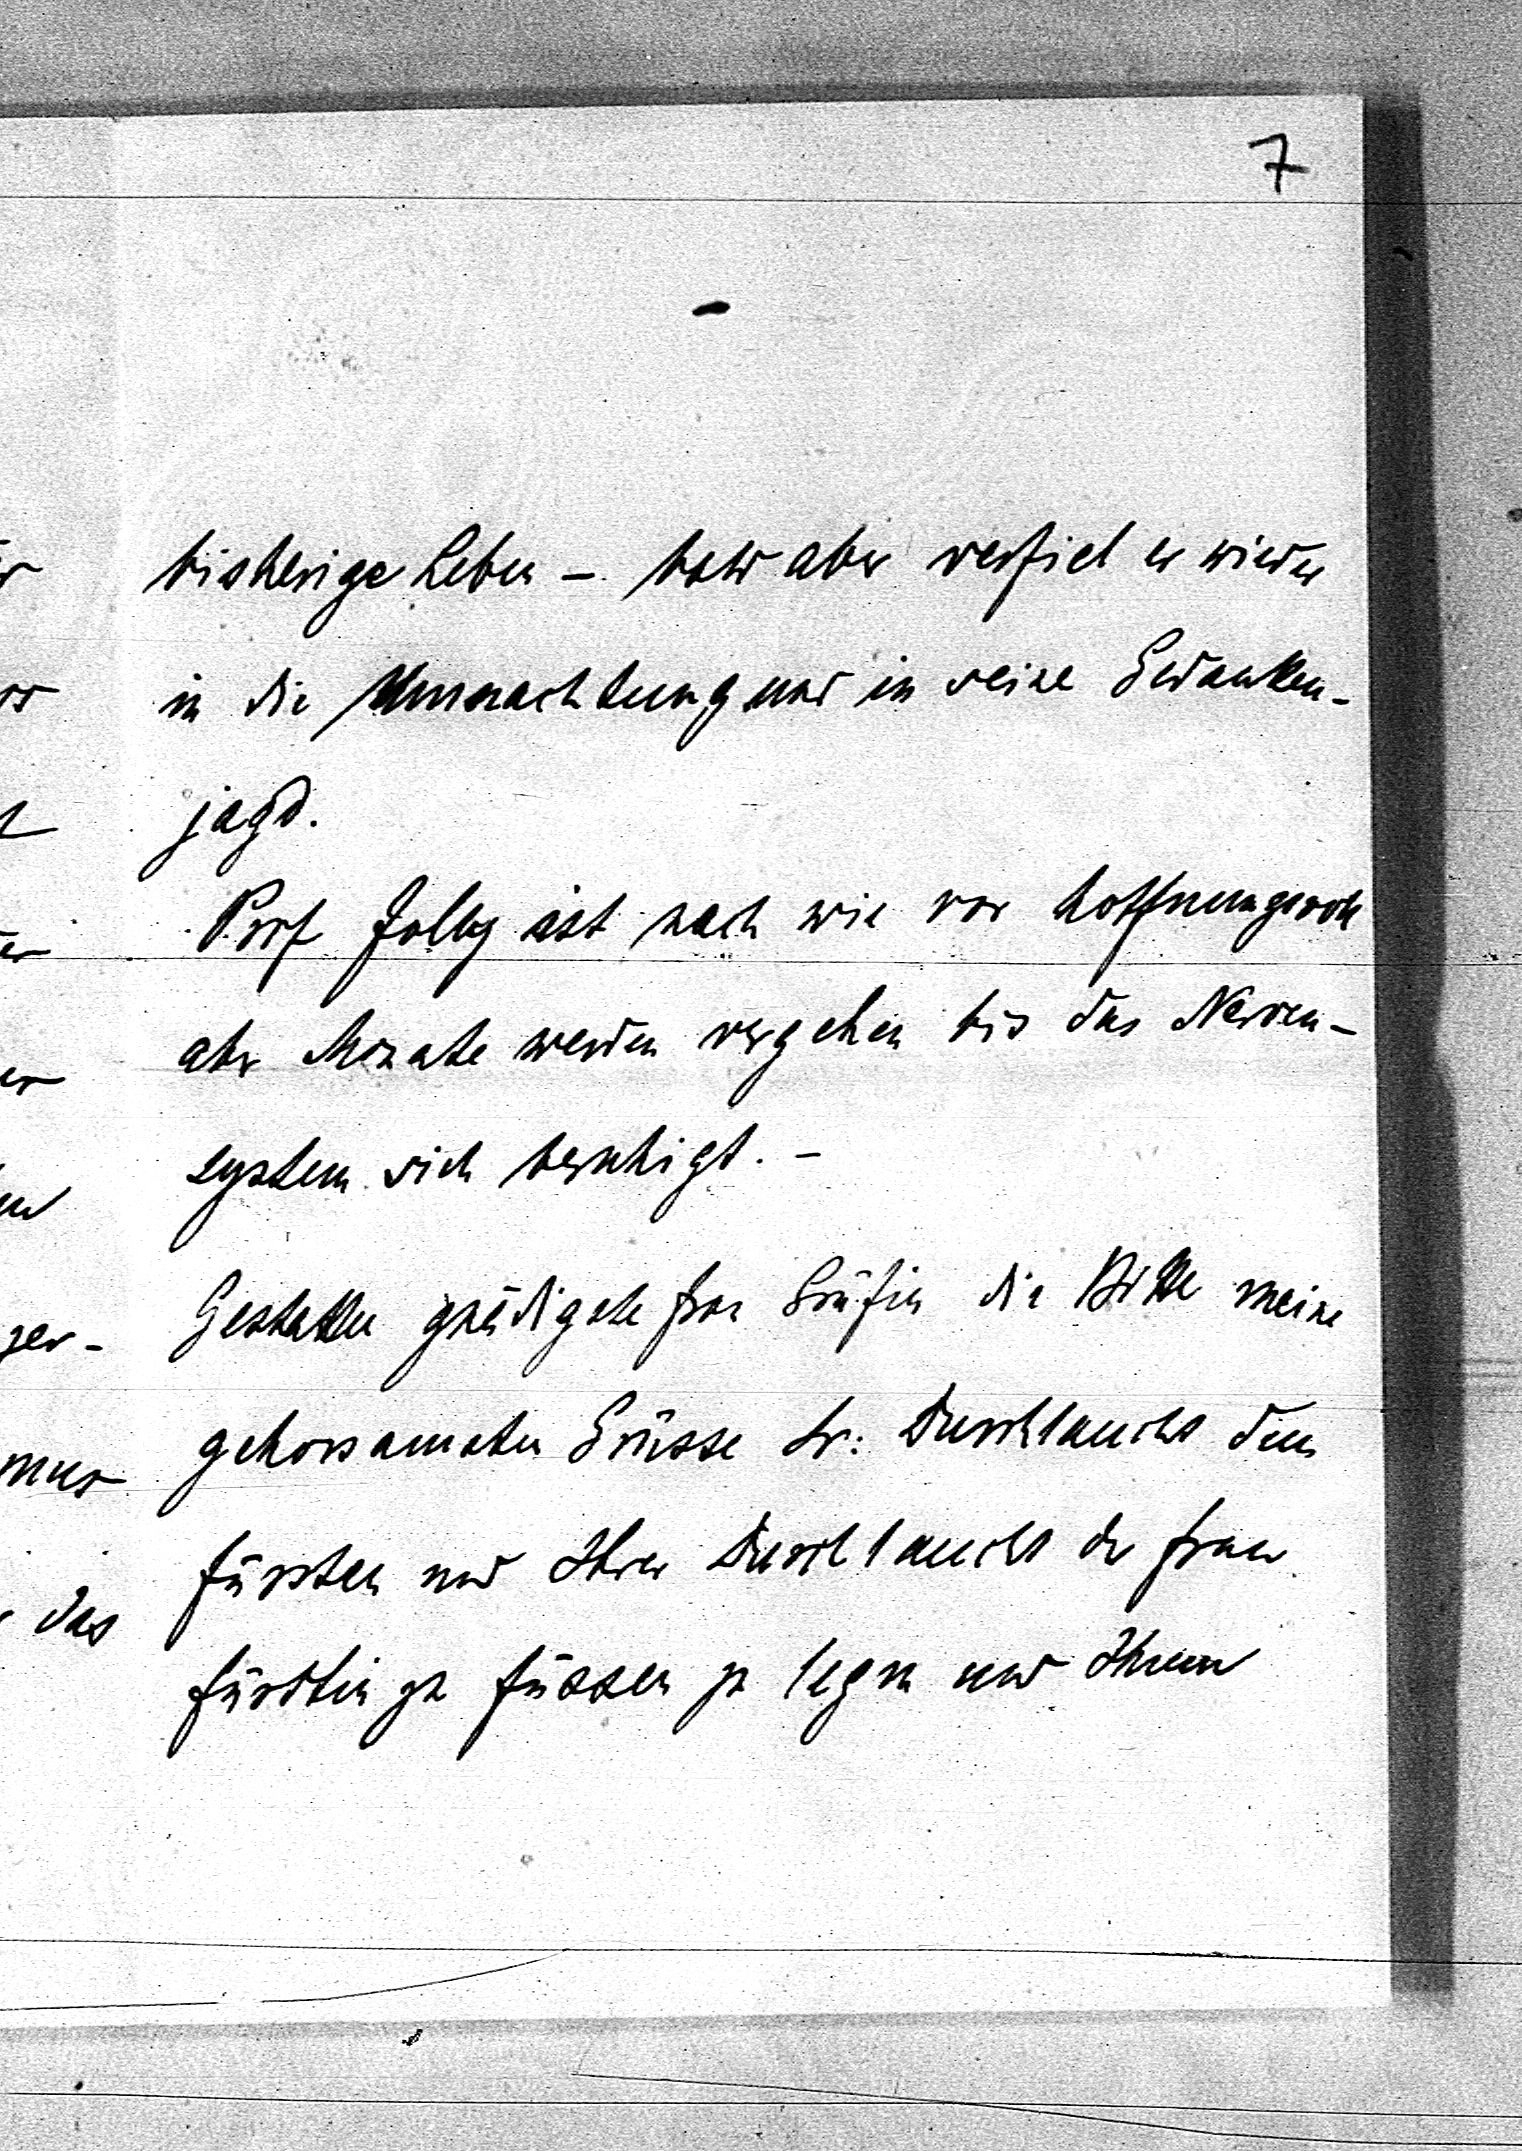 7
bisherige Leben – bald aber verfiel er wieder
in die Umnachtung und in seine Gedanken-
jagd.
Prof Jolly ist nach wie vor hoffnungsvoll
aber Monate werden vergehen bis das Nerven-
system sich beruhigt. –
Gestatten gnädigste Frau Gräfin die Bitte meine
gehorsamsten Grüsse Sr: Durchlaucht dem
Fürsten und Ihrer Durchlaucht der Frau
Fürstin zu Füssen zu legen und Ihnen
ger-
das